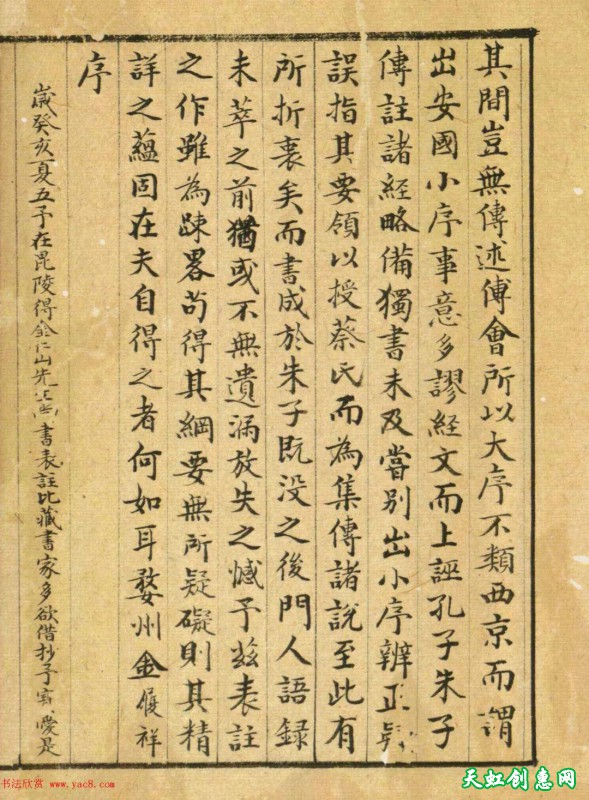 其間豈無傳述傅會所以大序不類西京而謂
出安國小序事意多謬經文而上誣孔子朱子
傳註諸經略備獨書未及嘗別出小序辨正
誤指其要領以授蔡氏而為集傳諸說至此有
所折衷矣而書成於朱子既没之後門人語録
未萃之前猶或不無遺漏放失之憾予茲表註
之作雖為踈畧苟得其綱要無所疑礙則其精
詳之蘊固在夫自得之者何如耳婺州金履祥
序
歲癸亥夏五予在毘陵得金仁山先生尚書表註比藏書家多欲借抄予寔愛是
书法欣赏 www.yac8.com
天虹创惠网